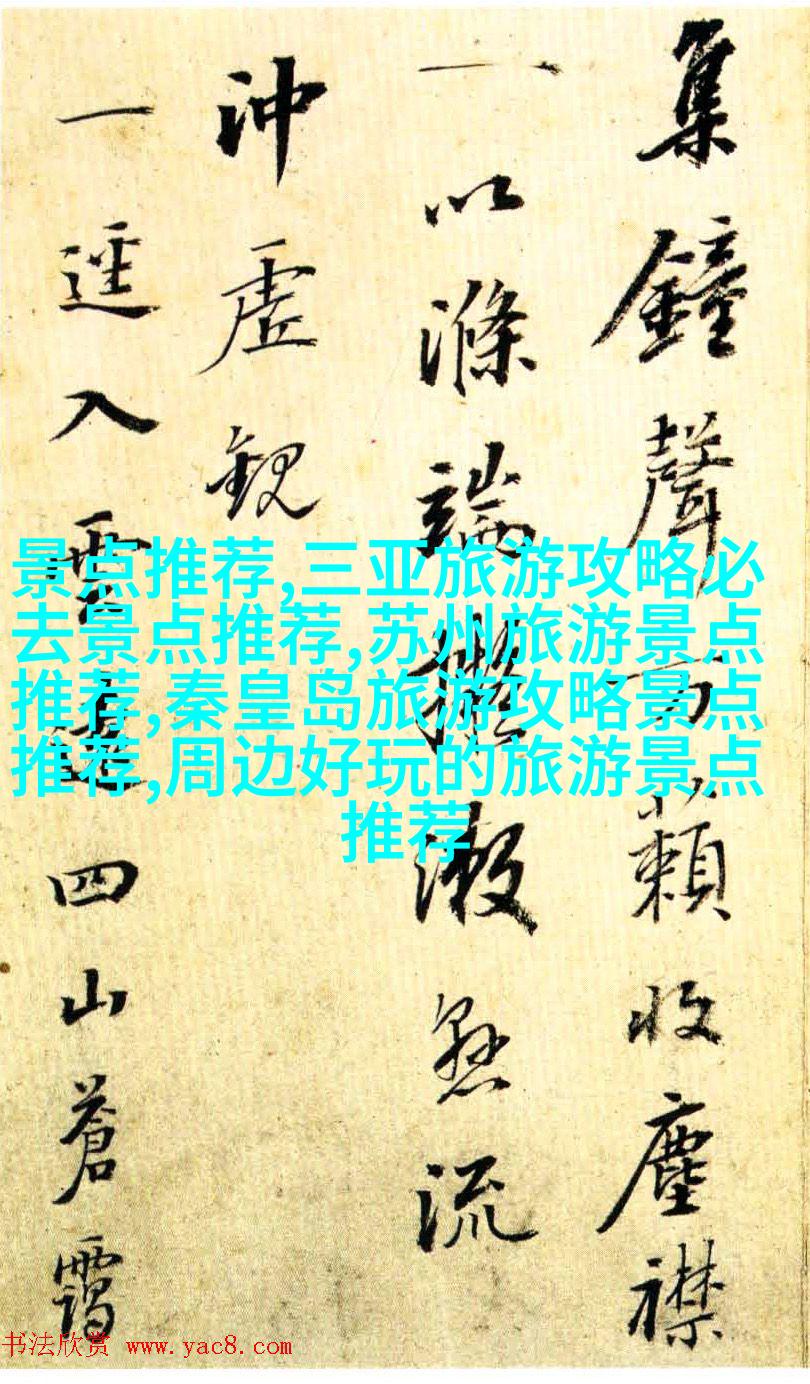 集鐘聲萬籟收塵襟
一以滌端擬潄急流
沖虛観
一逕入雲邊四山蒼靄
景点推荐,三亚旅游攻略必
去景点推荐,苏州旅游景点
推荐,秦皇岛旅游攻略景点
推荐,周边好玩的旅游景点
推荐
书法欣赏 www.yac8.com